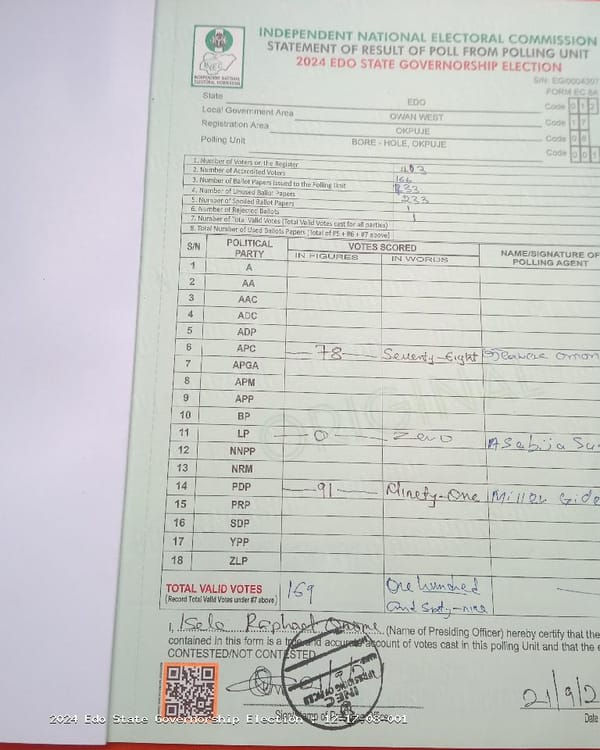 INDEPENDENT NATIONAL ELECTORAL COMMISSION
STATEMENT OF RESULT OF POLL FROM POLLING UNIT
2024 EDO STATE GOVERNORSHIP ELECTION
INEC
INDEPENDENT NATIONAL ELECTORAL COMMISSION
FORM EC 8A
State EDO Code 0 1 2
Local Government Area OWAN WEST Code 1 7
Registration Area OKPUJE Code 0 8
Polling Unit BORE - HOLE, OKPUJE Code 0 0 1
1. Number of Voters on the Register 403
2. Number of Accredited Voters
3. Number of Ballot Papers Issued to the Polling Unit
4. Number of Unused Ballot Papers 233
5. Number of Spoiled Ballot Papers
6. Number of Rejected Ballots
7. Number of Total Valid Votes (Total Valid Votes cast for all parties)
8. Total Number of Used Ballots Papers (Total of #5 + #6 + #7 above)
S/N POLITICAL PARTY VOTES SCORED NAME/SIGNATURE OF POLLING AGENT
IN FIGURES IN WORDS
1 A
2 AA
3 AAC
4 ADC
5 ADP
6 APC 78 Seventy-Eight
7 APGA
8 APM
9 APP
10 BP
11 LP 0 Zero
12 NNPP
13 NRM
14 PDP 91 Ninety-One
15 PRP
16 SDP
17 YPP
18 ZLP
ORIGINAL
TOTAL VALID VOTES 169 One hundred
(Record Total Valid Votes under #7 above) and Sixty-nine
I, (Name of Presiding Officer) hereby certify that the
contained in this form is a true and accurate account of votes cast in this polling Unit and that the
CONTESTED/NOT CONTESTED
INEC
21/9/2
Date
2024 Edo State Governorship Election - 12-17-08-001